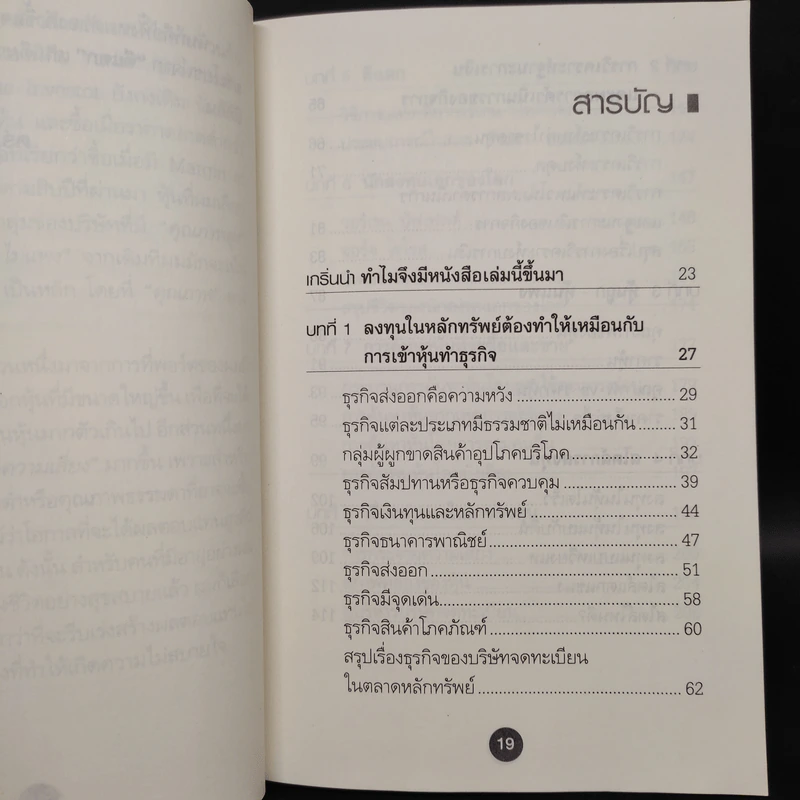 สารบัญ
เกริ่นนำ ทำไมจึงมีหนังสือเล่มนี้ขึ้นมา 23
บทที่ 1 ลงทุนในหลักทรัพย์ต้องทำให้เหมือนกับ
การเข้าหุ้นทำธุรกิจ 27
ธุรกิจส่งออกคือความหวัง 29
ธุรกิจแต่ละประเภทมีธรรมชาติไม่เหมือนกัน 31
กลุ่มผู้ผูกขาดสินค้าอุปโภคบริโภค 32
ธุรกิจสัมปทานหรือธุรกิจควบคุม 39
ธุรกิจเงินทุนและหลักทรัพย์ 44
ธุรกิจธนาคารพาณิชย์ 47
ธุรกิจส่งออก 51
ธุรกิจมีจุดเด่น 58
ธุรกิจสินค้าโภคภัณฑ์ 60
สรุปเรื่องธุรกิจของบริษัทจดทะเบียน
ในตลาดหลักทรัพย์ 62
19